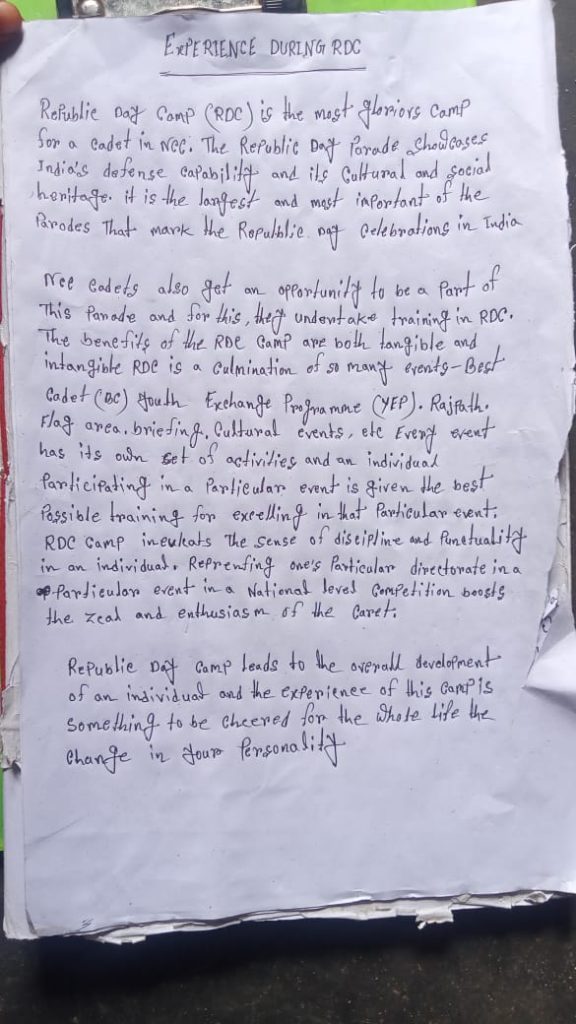 EXPERIENCE DURING RDC
Republic Day Camp (RDC) is the most gloriors Camp
for a cadet in Ncc. The Republic Day Parade Showcases
India's defense capability and its Cultural and social
heritage. it is the largest and most important of the
Parades That mark the Republic Day celebrations in India
Ncc Cadets also get an opportunity to be a Part of
This Parade and for this, they undertake training in RDC.
The benefits of the RDC Camp are both tangible and
intangible RDC is a Culmination of so many events - Best
Cadet (BC) Youth Exchange Programme (YEP). Rajpath.
Flag area. briefing. Cultural events, etc Every event
has its own set of activities and an individual
Participating in a Particular event is given the best
Possible training for excelling in that Particular event.
RDC Camp inculcats The sense of discipline and Punctuality
in an individual. Reprenting one's Particular directorate in a
Particular event in a National level Competition boosts
the zeal and enthusiasm of the Caret.
Republic Day Camp leads to the overall development
of an individual and the experience of this Camp is
Something to be cheered for the Whole life the
Change in your Personality